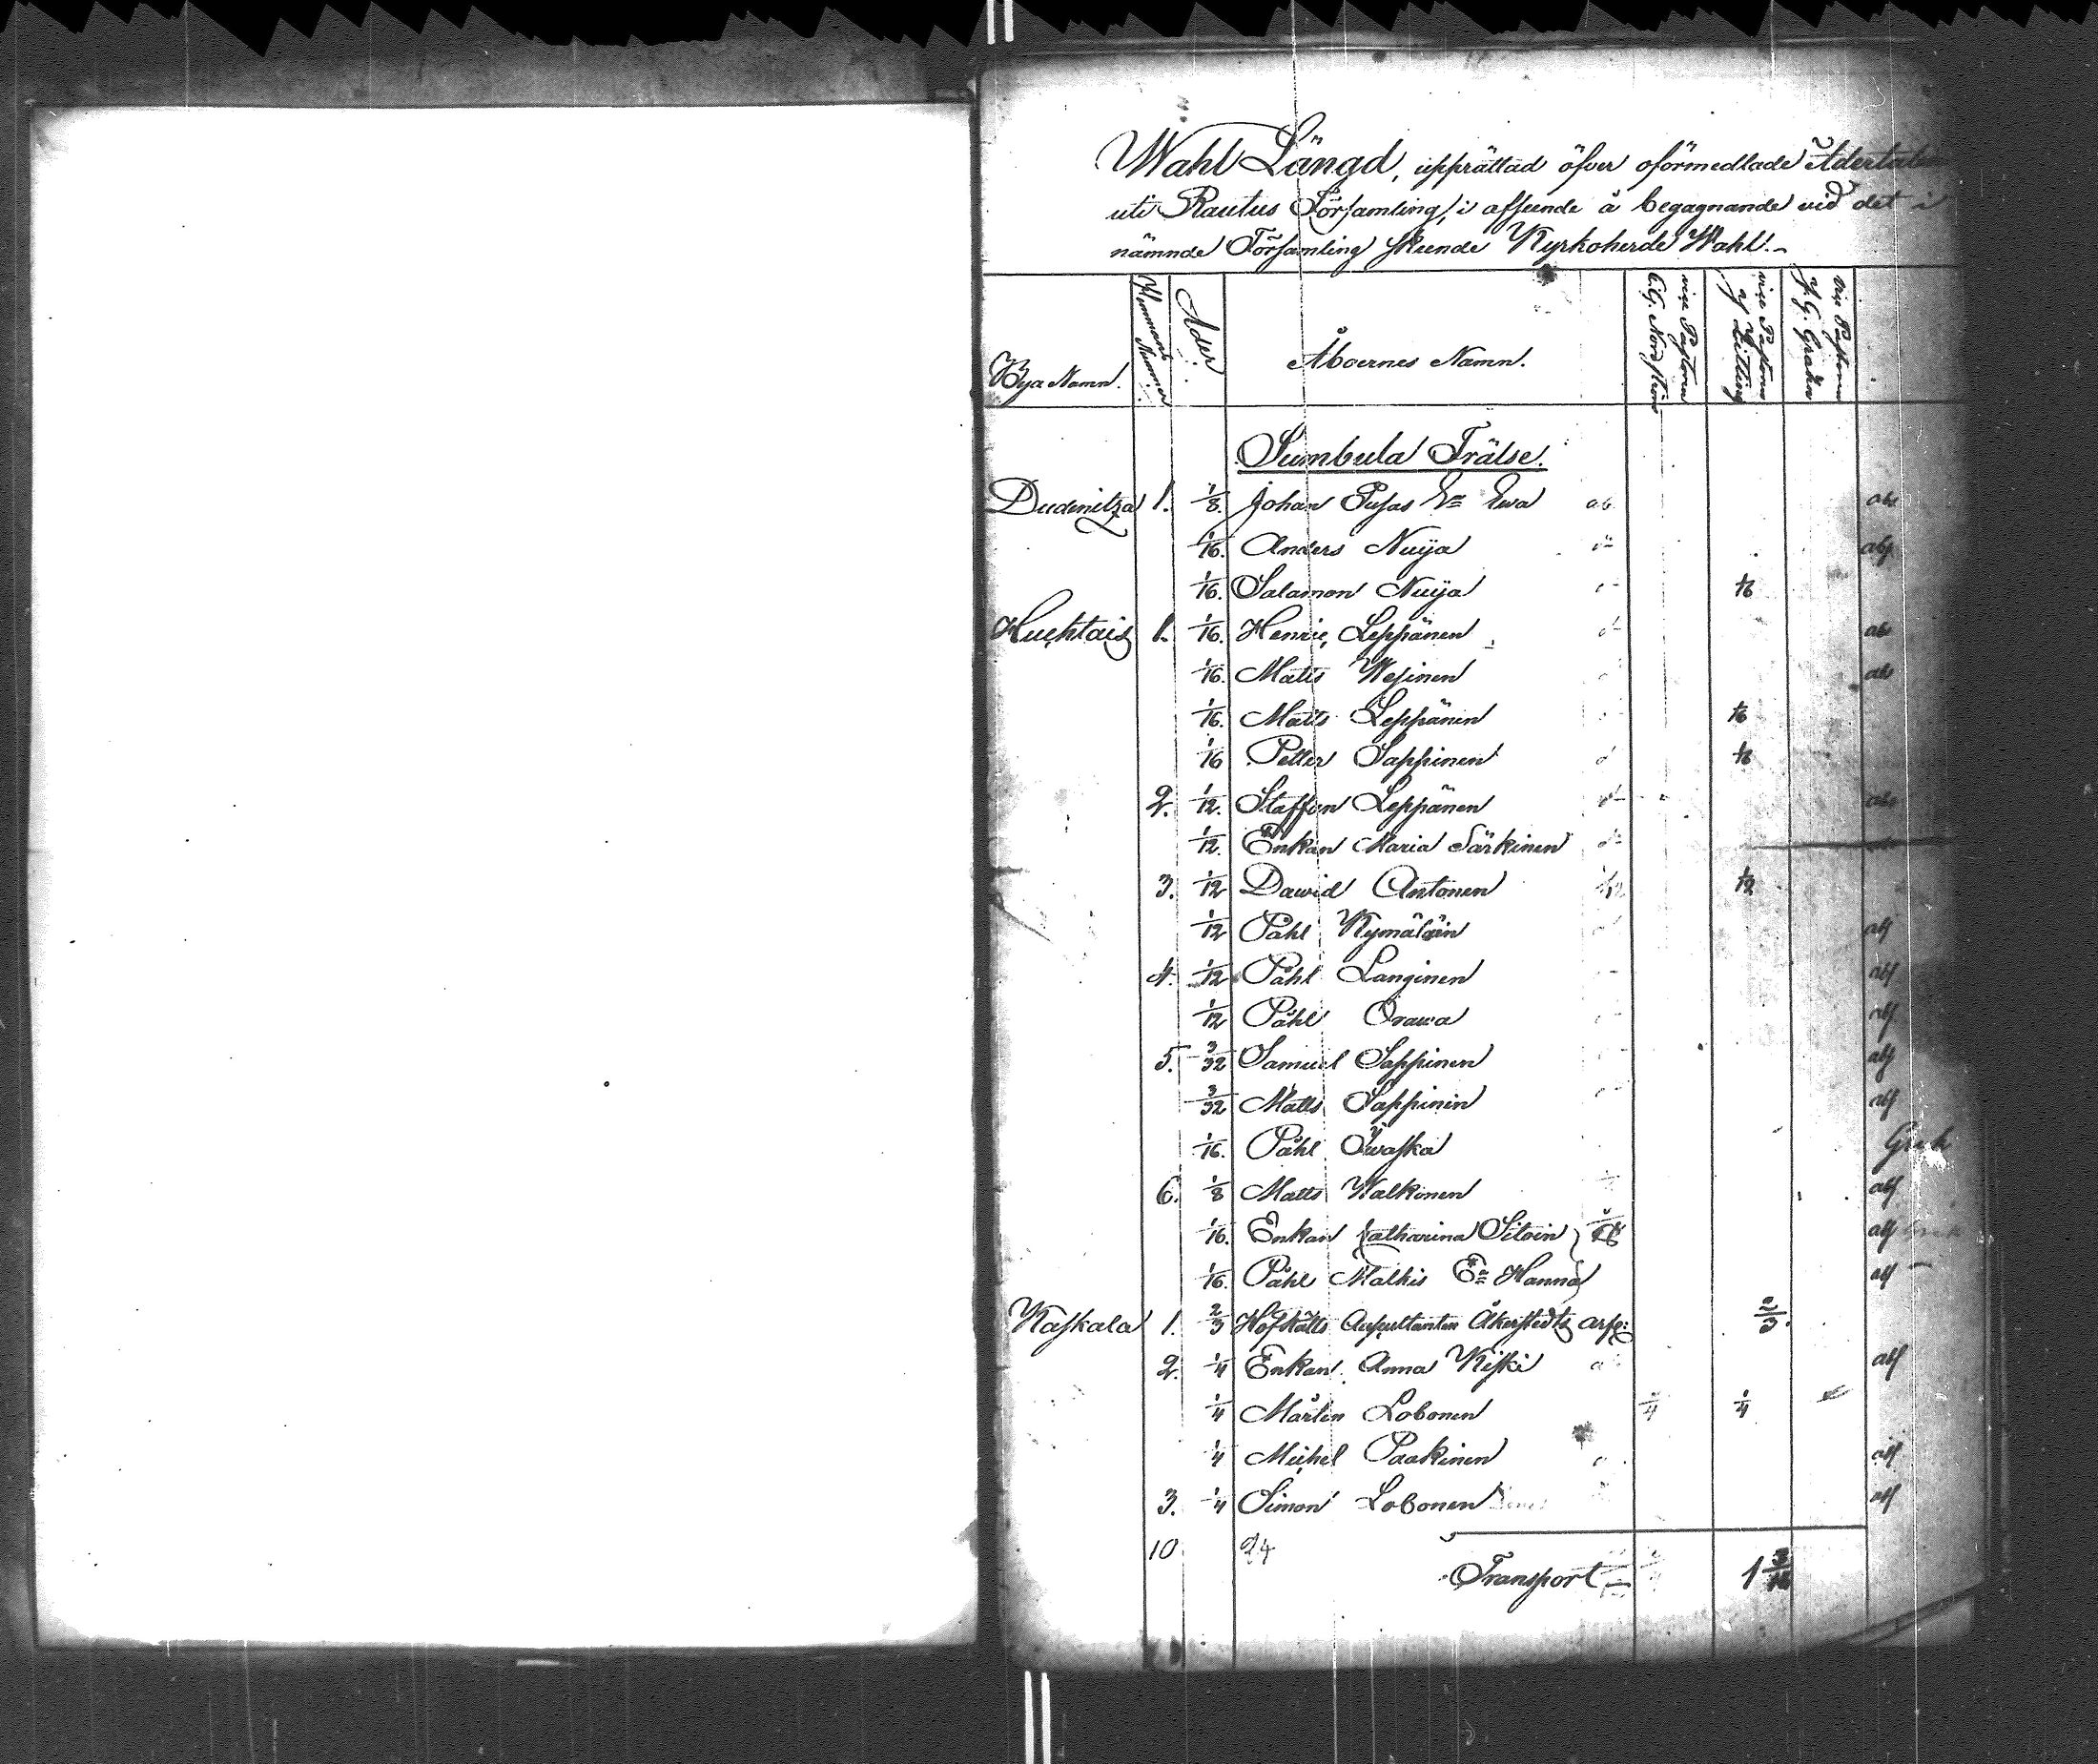 Wahl Längd, upprättad öfver oförmedlade Adertalen
uti Rautus Församling, i afseende å begagnande vid det i
nämnde Församling skeende Kyrkoherde Wahl.
Bya Namn. Hemmans Numer Ader. Åboernes Namn. vice Pastorn C.G. Nordström vice Pastorn vice Pastorn
Sumbula Frälse.
Dudenitza 1. 1/8. Johan Pusas Ea Ewa ab. abs
1/16. Anders Nuija abs
1/16. Salamon Nuija 1/16
Huchtais 1. 1/16. Henric Leppänen abs
1/16. Matts Wesinen abs
1/16. Matts Leppänen 1/16
1/16 Petter Sappinen 1/16
2. 1/12. Staffan Leppänen abs
1/12. Enkan Maria Särkinen
3. 1/12 Dawid Antonen 1/12
1/12 Påhl Kymäläin abs
4. 1/12 Påhl Langinen abs
1/12 Påhl Orawa abs
5. 3/32 Samuel Sappinen abs
3/32 Matts Sappinin abs
1/16. Påhl Iwaska
6. 1/8 Matts Walkonen abs
1/16. Enkan Catharina Sitoin abs
1/16. Påhl Malkis Ea Hanna abs
Kaskala 1. 2/3 Hofrätts Auscultanten Åkerstedts arfv: 2/3.
2. 1/4 Enkan Anna Kiski abs
1/4 Mårten Lobonen 1/4 1/4
1/4 Michel Paakinen abs
3. 1/4 Simon Lobonen abs
10. 24
Transport 1 3/16